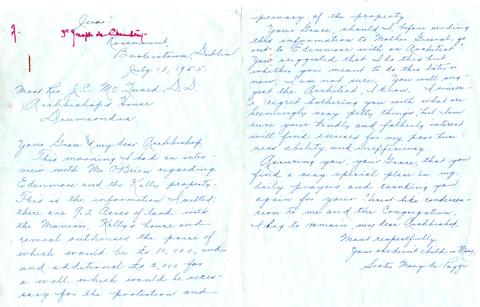 Jesu!
St Joseph de Chambéry
Rosemount,
Booterstown, Dublin
July 18, 1955.
Most Rev. J.C. Mc Quaid, D.D.
Archbishop's House
Drumcondra
Your Grace & my dear Archbishop,
This morning I had an inter-
view with Mr O'Brien regarding
Edenmore and the Kelly property.
This is the information I elicited:
there are 9.2 Acres of land with
the Mansion, Kelly's house and
several outhouses the price of
which would be £ 10,000, and
and additional £ 2,000 for
a wall which would be neces-
sary for the protection and
privacy of the property.
Your Grace, should I before sending
this information to Mother General, go
out to Edenmore with an Architect?
You suggested that I do this but
whether you meant to do this later or
now I am not sure. You will sug-
gest the Architect, I know. I sincere-
ly regret bothering you with what are
seemingly very petty things, but I am
sure your kindly and fatherly interest
will find excuse for my poor busi-
ness ability and inefficiency.
Assuring you, your Grace, that you
find a very special place in my
daily prayers, and thanking you
again for your Christ like condescen-
sion to me and the Congregation,
I beg to remain, my dear Archbishop,
Most respectfully
Your obedient child in
Sister Mary de